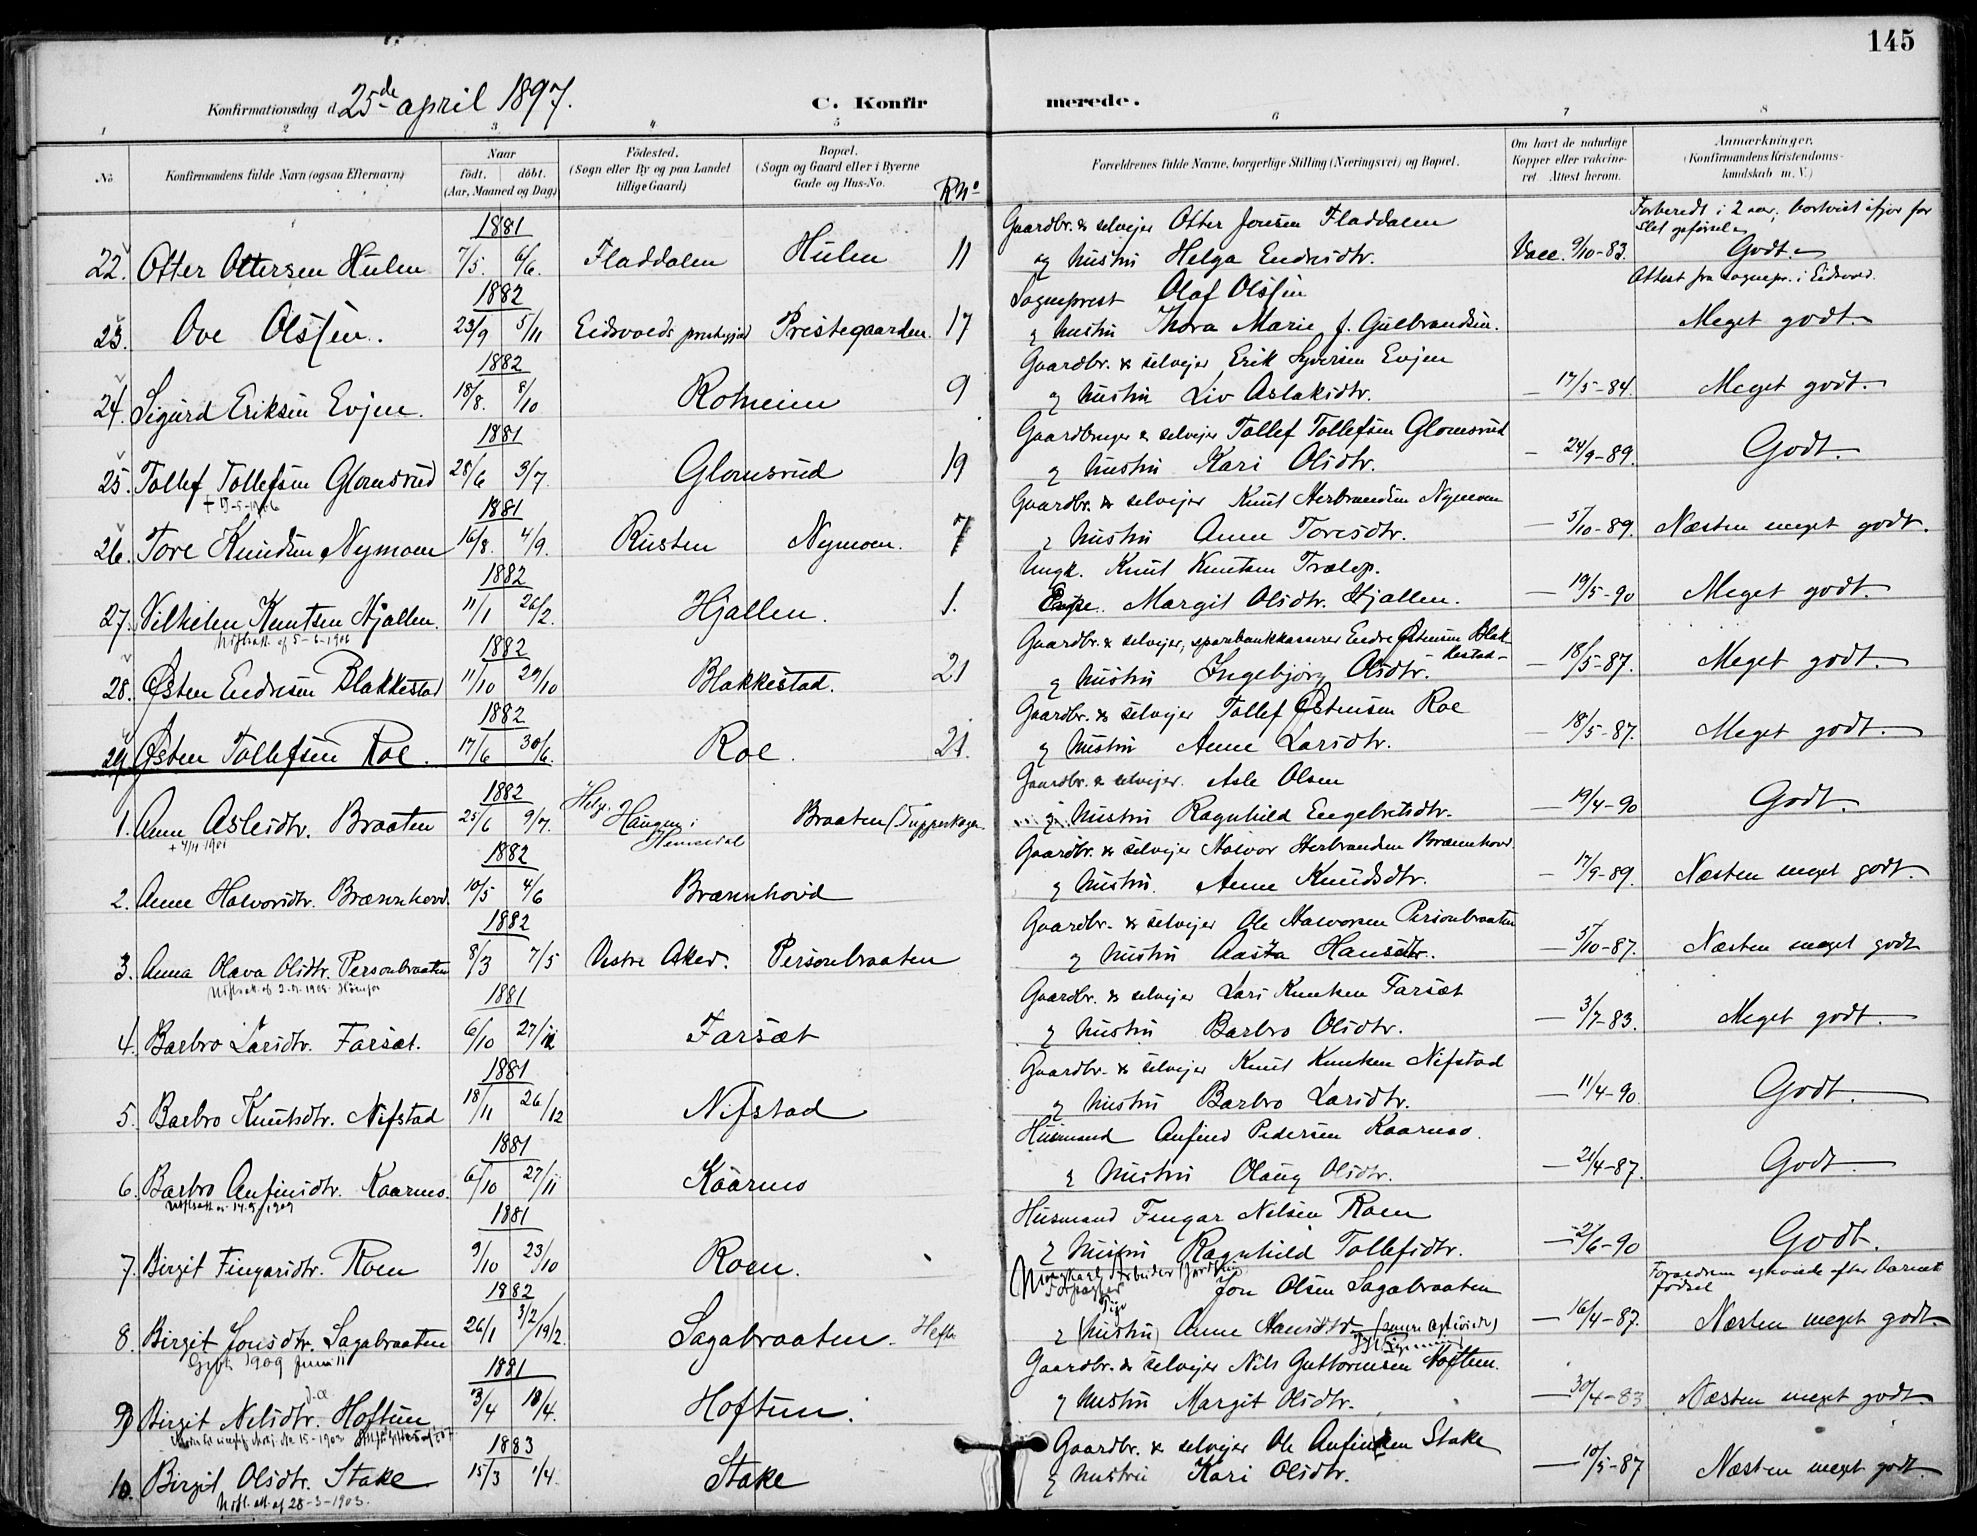 145
Konfirmationsdag d. 25de april 1897.
C. Konfirmerede.
1 2 3 4 5 6 7 8
No. Konfirmandens fulde Navn (ogsaa Efternavn) Naar födt. döbt. (Aar, Maaned og Dag) Födested. (Sogn eller By og paa Landet tillige Gaard) Bopæl. (Sogn og Gaard eller i Byerne Gade og Hus-No. R No. Forældrenes fulde Navne, borgerlige Stilling (Næringsvei) og Bopæl. Om havt de naturlige Kopper eller vakcineret. Attest herom. Anmærkninger. (Konfirmandens Kristendomskundskab m. V.)
1881 Gaardbr. & selvejer Otter Jonsen Fladdalen Forberedt i 2 aar; bortvist ifjor for slet opførsel
22. Otter Ottersen Hulen 7/5. 6/6. Fladdalen Hulen 11 og hustru Helga Endresdtr. Vacc. 9/10-83. Godt.
1882 Sogneprest Olaf Olssen Attest fra sognepr. i Eidsvold.
23. Ove Olssen. 23/9 5/11 Eidsvolds prestegjæld Prestegaarden. 17 & hustru Thora Marie f. Gulbrandsen. Meget godt.
1882 Gaardbr. & selvejer Erik Syversen Evjen
24. Sigurd Eriksen Evjen. 18/8. 8/10 Rotneim 9 & hustru Liv Aslaksdtr. — 17/5-84. Meget godt.
1881 Gaardbruger & selvejer Tollef Tollefsen Glomsrud
25. Tollef Tollefsen Glomsrud 28/6 3/7. Glomsrud 19 & hustru Kari Olsdtr. — 24/9-89. Godt.
1881 Gaardbr. & selvejer Knut Herbrandsen Nymoen
26. Tore Knudsen Nymoen 16/8. 4/9. Rusten Nymoen. 7 & hustru Anne Toresdtr. — 5/10-89. Næsten meget godt.
1882 Ungk. Knut Knutsen Trælp.
27. Vilhelm Knutsen Hjallen. 11/1 26/2. Hjallen. 1. Margit Olsdtr. Hjallen. — 19/5-90 Meget godt.
Udflsatt. af 5-6-1906
1882 Gaardbr. & selvejer, sparebankkasserer Endre Østensen Blakkestad
28. Østen Endresen Blakkestad 11/10 29/10 Blakkestad. 21 & hustru Ingebjørg Olsdtr. — 18/5-87. Meget godt.
1882 Gaardbr. & selvejer Tollef Østensen Roe
29. Østen Tollefsen Roe. 17/6 30/6. Roe. 21. & hustru Anne Larsdtr. — 18/5-87. Meget godt.
1882 Gaardbr. & selvejer. Asle Olsen
1. Ann Aslesdtr. Braaten 25/6 9/7. Haugen i Hemsedal Braaten & hustru Ragnhild Engebretsdtr. — 19/4-90 Godt.
+ 4/11-1901
1882 Gaardbr. & selvejer Halvor Herbrandsen Brænnhovd.
2. Anne Halvorsdtr. Brænnhovd. 10/5 4/6 Brænnhovd & hustru. Anne Knudsdtr. — 17/9-89. Næsten meget godt.
1882 Gaardbr. & selvejer Ole Halvorsen Personbraaten
3. Anna Olava Olsdtr. Personbraaten 8/3 7/5 Vestre Aker. Personbraaten & hustru Aasta Hansdtr. — 5/10-87. Næsten meget godt
1881 Gaardbr. & selvejer Lars Knutsen Farsæt
4. Barbro Larsdtr. Farsæt. 6/10 27/12 Farsæt & hustru Barbro Olsdtr. — 3/7-83. Meget godt.
1881 Gaardbr. & selvejer Knut Knutsen Nifstad
5. Barbro Knutsdtr. Nifstad 18/11 26/12 Nifstad & hustru Barbro Larsdtr. — 11/4-90. Godt.
1881 Husmand Anfind Pedersen Kaarmo.
6. Barbro Anfinsdtr. Kaarmo. 6/10 27/11 Kaarmo & hustru Olaug Olsdtr. — 21/4-87. Godt.
1881 Husmand Fingar Nilsen Roen
7. Birgit Fingarsdtr. Roen 9/10 23/10 Roen. & hustru Ragnhild Tollefsdtr. — 2/6-90 Godt.
1882 Jon Olsen Sagabraaten Forældrene egteviede efter barnets fødsel
8. Birgit Jonsdtr. Sagabraaten 26/1 19/2. Sagabraaten. & (hustru) Anne Hansdtr — 16/4-87. Næsten meget godt.
Gift 1909 Juni 11
1881 Gaardbr. & selvejer Nils Guttormsen Hoftun.
9. Birgit Nelsdtr. Hoftun 3/4 18/4. Hoftun. & hustru Margit Olsdtr. — 30/4-83 Næsten meget godt.
1883 Gaardbr. & selvejer Ole Anfinsen Stake
10. Birgit Olsdtr. Stake 15/3 1/4. Stake & hustru Kari Olsdtr. — 10/5-87 Næsten meget godt.
Udfl. att. af 28-3-1903.